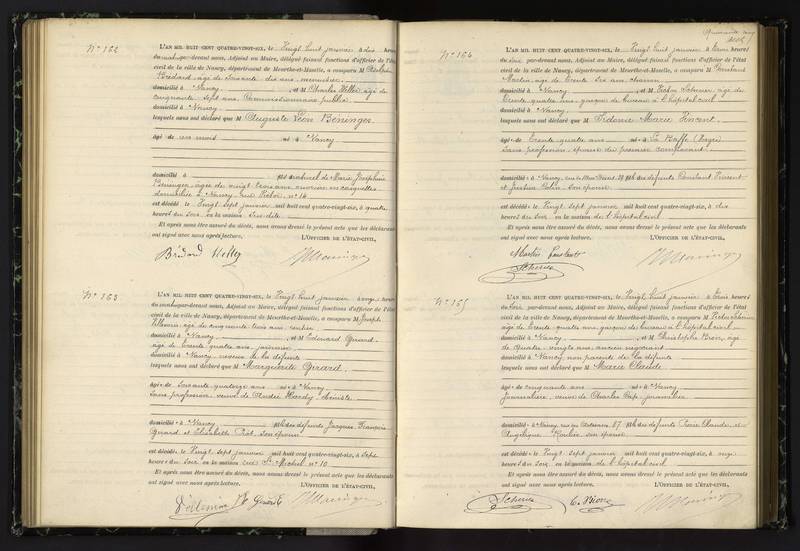 N° 162
L'AN MIL HUIT CENT QUATRE-VINGT-SIX, le Vingt huit janvier à dix heures
du matin par-devant nous, Adjoint au Maire, délégué faisant fonctions d'officier de l'état
civil de la ville de Nancy, département de Meurthe-et-Moselle, a comparu M
Bridard âgé de soixante dix ans
domicilié à Nancy, et M Charles âgé de
cinquante sept ans Commissionnaire public
domicilié à Nancy
lesquels nous ont déclaré que M Auguste Léon Béninger
âgé de un mois né à Nancy
domicilié à fils naturel de Marie Joséphine
Béninger, âgée de vingt trois ans ouvrière en casquettes
domiciliée à Nancy rue n° 14
est décédé le Vingt sept janvier mil huit cent quatre-vingt-six, à quatre
heures du soir en la maison sus dite
Et après nous être assuré du décès, nous avons dressé le présent acte que les déclarants
ont signé avec nous après lecture. L'OFFICIER DE L'ÉTAT-CIVIL,
Bridard
N° 163
L'AN MIL HUIT CENT QUATRE-VINGT-SIX, le Vingt huit janvier à onze heures
du matin par-devant nous, Adjoint au Maire, délégué faisant fonctions d'officier de l'état
civil de la ville de Nancy, département de Meurthe-et-Moselle, a comparu M Joseph
âgé de cinquante trois ans rentier
domicilié à Nancy, et M Edouard Girard
âgé de trente quatre ans
domicilié à Nancy neveux de la défunte
lesquels nous ont déclaré que M Marguerite Girard
âgée de soixante quatorze ans née à Nancy
sans profession, veuve de André Hardy
domiciliée à Nancy fille des défunts Jacques François
Girard et Elisabeth son épouse
est décédée le Vingt sept janvier mil huit cent quatre-vingt-six, à sept
heures du soir en la maison rue St Michel n° 10
Et après nous être assuré du décès, nous avons dressé le présent acte que les déclarants
ont signé avec nous après lecture. L'OFFICIER DE L'ÉTAT-CIVIL,
N° 164
L'AN MIL HUIT CENT QUATRE-VINGT-SIX, le Vingt huit janvier à trois heures
du soir, par-devant nous, Adjoint au Maire, délégué faisant fonctions d'officier de l'état
civil de la ville de Nancy, département de Meurthe-et-Moselle, a comparu M Constant
Martin âgé de trente six ans
domicilié à Nancy, et M âgé de
trente quatre ans, garçon de bureau à l'hôpital civil
domicilié à Nancy
lesquels nous ont déclaré que M Fidonie Marie Vincent
âgée de trente quatre ans née à La Baffe (Vosges)
sans profession épouse du premier comparant
domiciliée à Nancy, fille des défunts Constant Vincent
et Colin son épouse
est décédée le Vingt sept janvier mil huit cent quatre-vingt-six, à dix
heures du soir en la maison de l'hôpital civil
Et après nous être assuré du décès, nous avons dressé le présent acte que les déclarants
ont signé avec nous après lecture. L'OFFICIER DE L'ÉTAT-CIVIL,
Martin Constant
N° 165
L'AN MIL HUIT CENT QUATRE-VINGT-SIX, le Vingt huit janvier à trois heures
du soir, par-devant nous, Adjoint au Maire, délégué faisant fonctions d'officier de l'état
civil de la ville de Nancy, département de Meurthe-et-Moselle, a comparu M
âgé de trente quatre ans, garçon de bureau à l'hôpital civil
domicilié à Nancy, et M Christophe âgé
de quatre vingts ans, ancien négociant
domicilié à Nancy, non parents de la défunte
lesquels nous ont déclaré que M Marie Claude
âgée de cinquante ans née à Nancy
journalière, veuve de Charles journalier
domiciliée à Nancy 87 fille des défunts Claude et
Angélique son épouse
est décédée le Vingt sept janvier mil huit cent quatre-vingt-six, à onze
heures du soir en la maison de l'hôpital civil
Et après nous être assuré du décès, nous avons dressé le présent acte que les déclarants
ont signé avec nous après lecture. L'OFFICIER DE L'ÉTAT-CIVIL,